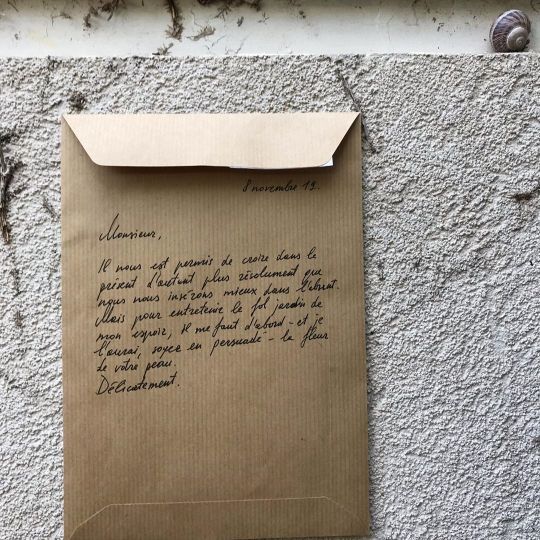 8 novembre 19.
Monsieur,
Il nous est permis de croire dans le
présent d'autant plus résolument que
nous nous insérons mieux dans l'abrat.
Mais pour entretenir le fol jardin de
mon espoir, il me faut d'abord - et je
l'aurai, soyez en persuadé - la fleur
de votre peau.
Délicatement.